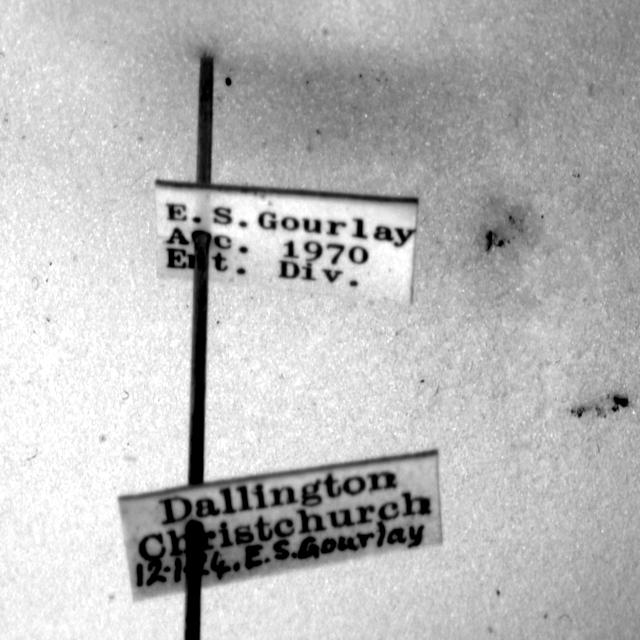 E. S. Gourlay
Acc. 1970
Ent. Div.
Dallington
Christchurch
E.S.Gourlay